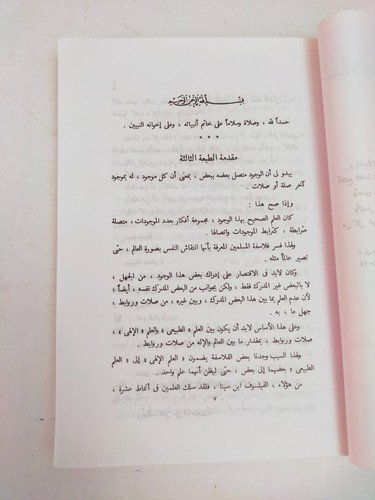 بسم الله الرحمن الرحيم
حمداً لله ، وصلاة وسلاماً على خاتم أنبيائه ، وعلى إخوانه النبيين .
* * *
مقدمة الطبعة الثالثة
يبدو لى أن الوجود متصل بعضه ببعض ، بمعنى أن كل موجود ، له بموجود
آخر صلة أو صلات .
وإذا صح هذا :
كان العلم الصحيح بهذا الوجود ، مجموعة أفكار بعدد الموجودات ، متصلة
مترابطة ، كترابط الموجودات واتصالها .
ولهذا فسر فلاسفة المسلمين المعرفة بأنها انتقاش النفس بصورة العالم ، حتى
تصير عالماً مثله .
وكان لابد أن الاقتصار على إدراك بعض هذا الوجود ، من الجهل ،
لا بالبعض غير المدرك فقط ، ولكن بجوانب من البعض المدرك نفسه ، أيضاً ؛
لأن عدم العلم بما بين هذا البعض المدرك ، وبين غيره ، من صلات وروابط ،
جهل ما ، به .
وعلى هذا الأساس لابد أن يكون بين العلم « الطبيعى » والعلم « الإلهى » ،
صلات وروابط ، بمقدار ما بين العالم والإله من صلات وروابط .
ولهذا السبب وجدنا بعض الفلاسفة يضمون « العلم الإلهى » إلى « العلم
الطبيعى » بعضهما إلى بعض ، حتى ليظن أنهما علم واحد .
من هؤلاء ، الفيلسوف ابن سينا ، فلقد سلك العلمين فى أنماط عشرة ،
٧